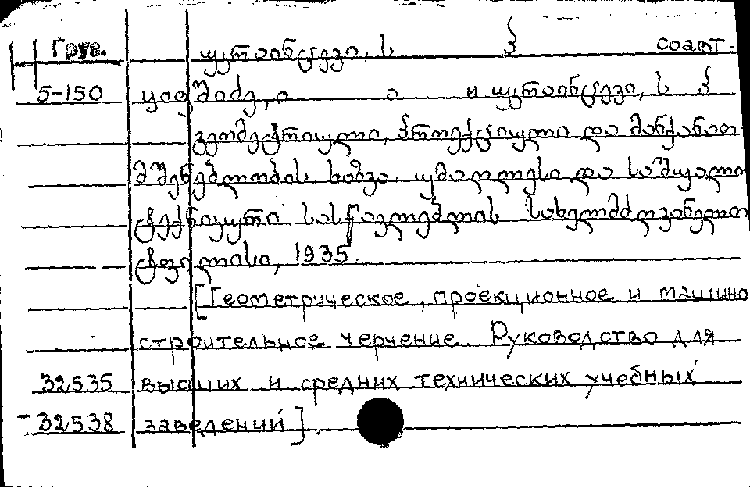 Груз. უკრაინცევი, ს პ соавт.
5-150 ყიფშიძე, ა ა и უკრაინცევი, ს პ
გეომეტრიული, პროექციული და მანქანათ
მშენებლობის ხაზვა უმაღლესი და საშუალო
ტექნიკური სასწავლებლის სახელმძღვანელო
ტფილისი, 1935.
[Геометрическое, проекционное и машино
строительное черчение. Руководство для
32535 высших и средних технических учебных
-32538 заведений].